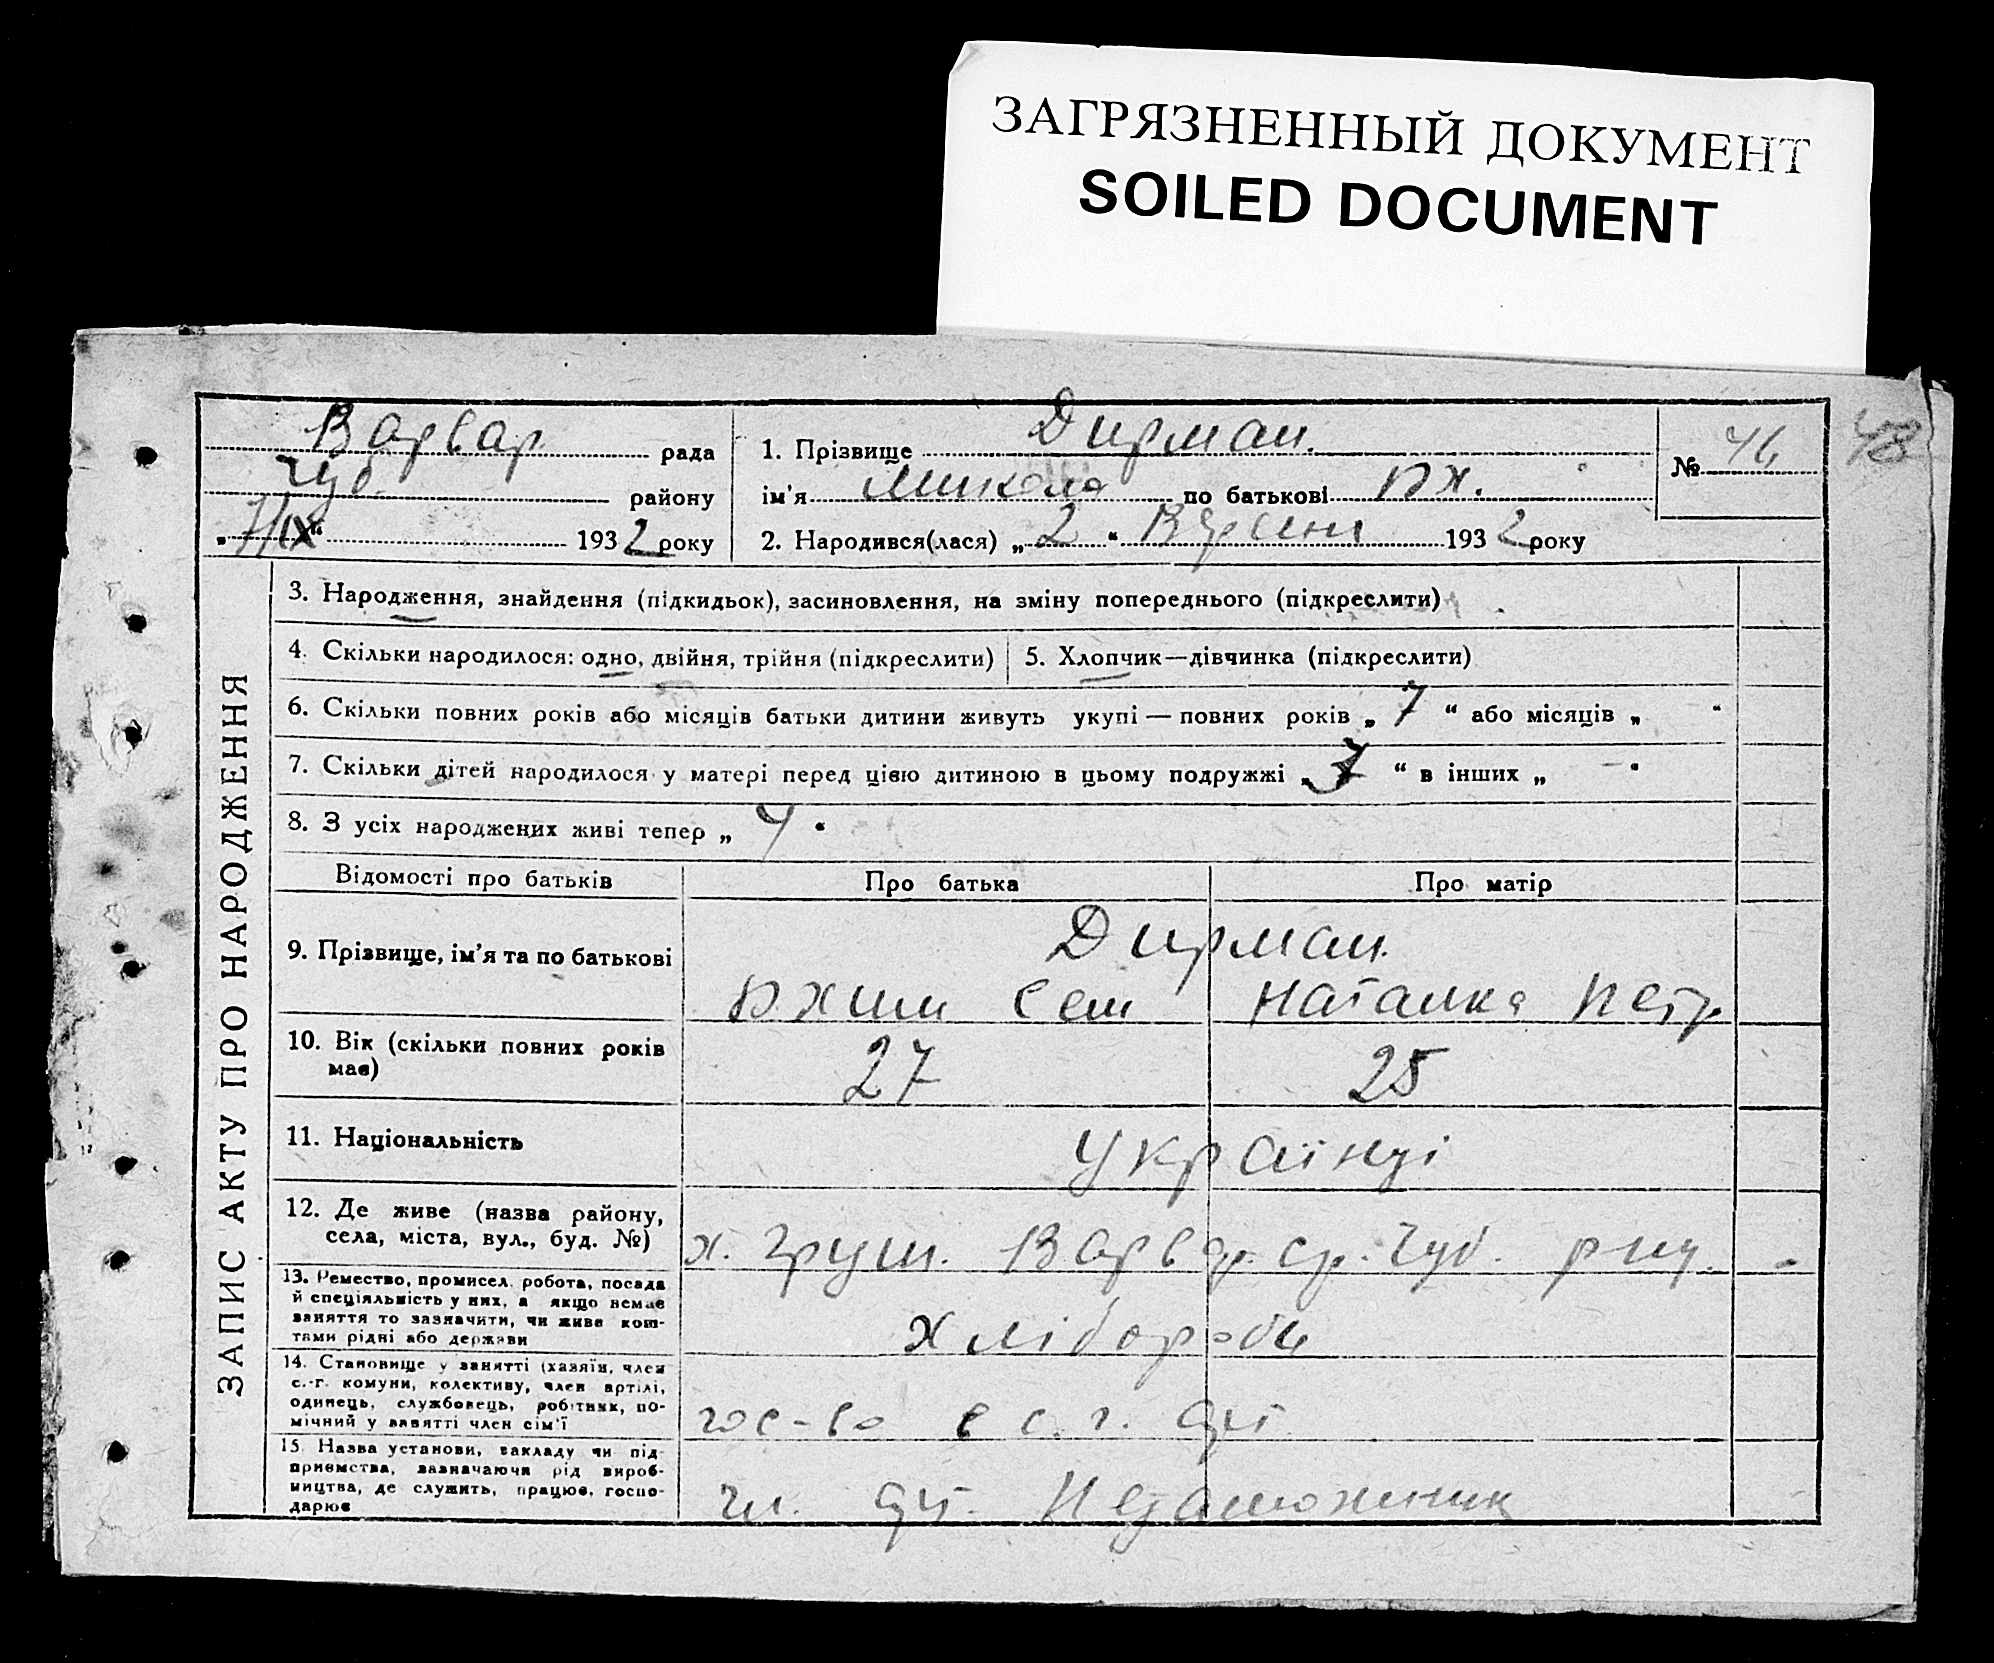 ЗАГРЯЗНЕННЫЙ ДОКУМЕНТ
SOILED DOCUMENT
48
Варвар рада
Чуб. району
„7/IX“ 1932 року
1. Прізвище Дирман.
ім'я Микола по батькові Як.
2. Народився(лася) „2“ Вересня 1932 року
№ 46
ЗАПИС АКТУ ПРО НАРОДЖЕННЯ
3. Народження, знайдення (підкидьок), засиновлення, на зміну попереднього (підкреслити)
4. Скільки народилося: одно, двійня, трійня (підкреслити)
5. Хлопчик—дівчинка (підкреслити)
6. Скільки повних років або місяців батьки дитини живуть укупі — повних років „ 7 “ або місяців „ “
7. Скільки дітей народилося у матері перед цією дитиною в цьому подружжі „ 3 “ в інших „ — “
8. З усіх народжених живі тепер „ 4 “
Відомості про батьків Про батька Про матір
9. Прізвище, ім'я та по батькові
Дирман.
Сем Наталка Петр
10. Вік (скільки повних років має)
27 25
11. Національність
Українці
12. Де живе (назва району,
села, міста, вул., буд. №)
х. Груш. Варвар. ср. Чуб. рну.
13. Ремество, промисел, робота, посада
й спеціяльність у них, а якщо немає
заняття то зазначити, чи живе кош-
тами рідні або держави
Хлібороби
14. Становище у занятті (хазяїн, член
с.-г. комуни, колективу, член артілі,
одинець, службовець, робітник, по-
мічний у занятті член сім'ї
гос-во в с. г. арт
15. Назва установи, закладу чи під-
приємства, зазначаючи рід вироб-
ництва, де служить, працює, госпо-
дарює
чл. арт. Незаможник